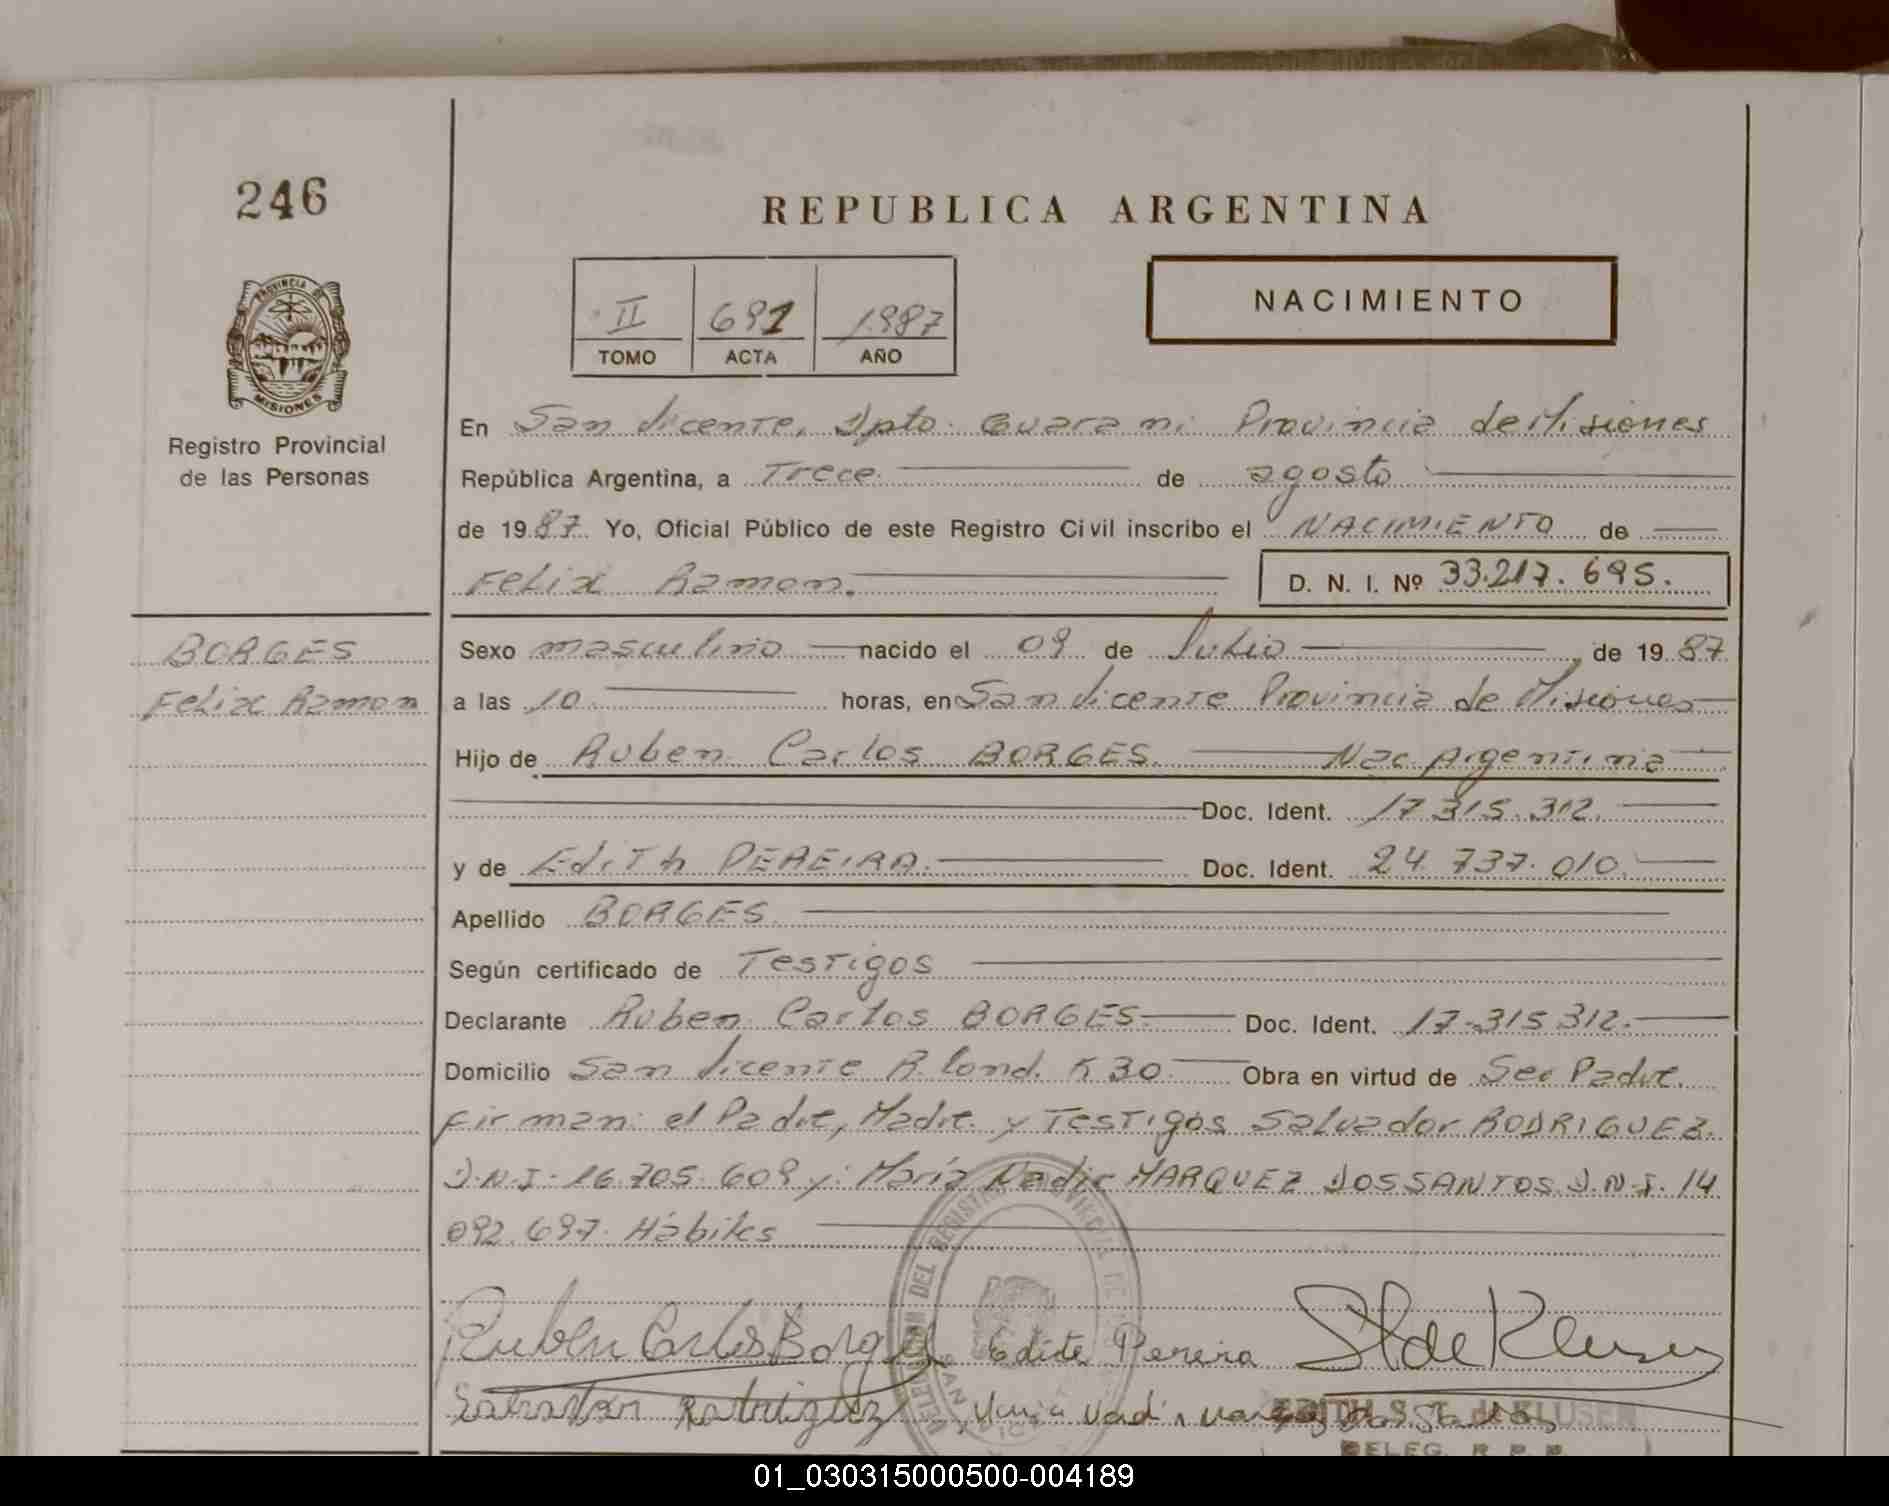 246
REPUBLICA ARGENTINA
PROVINCIA DE
MISIONES
Registro Provincial
de las Personas
II 691 1987
TOMO ACTA AÑO
NACIMIENTO
En San Vicente, Dpto. Guarani Provincia de Misiones
República Argentina, a Trece de agosto
de 1987. Yo, Oficial Público de este Registro Civil inscribo el NACIMIENTO de
Felix Ramon. D. N. I. Nº 33.217.695.
BORGES
Felix Ramon
Sexo masculino nacido el 09 de Julio de 1987
a las 10 horas, en San Vicente Provincia de Misiones
Hijo de Ruben Carlos BORGES. Nac Argentina
Doc. Ident. 17.315.312.
y de Edith PEREIRA. Doc. Ident. 24.737.010.
Apellido BORGES.
Según certificado de Testigos
Declarante Ruben Carlos BORGES. Doc. Ident. 17.315.312.
Domicilio San Vicente K 30 Obra en virtud de Ser Padre.
Firman: el Padre, Madre y Testigos Salvador RODRIGUEZ.
D.N.I. 16.705.609 y: María Nadir MARQUEZ DOSSANTOS. D.N.I. 14
092.697. Hábiles
Ruben Carlos Borges Edite Pereira
EDITH S. T. de KLUSEN
DELEG. R. P. P.
01_030315000500-004189